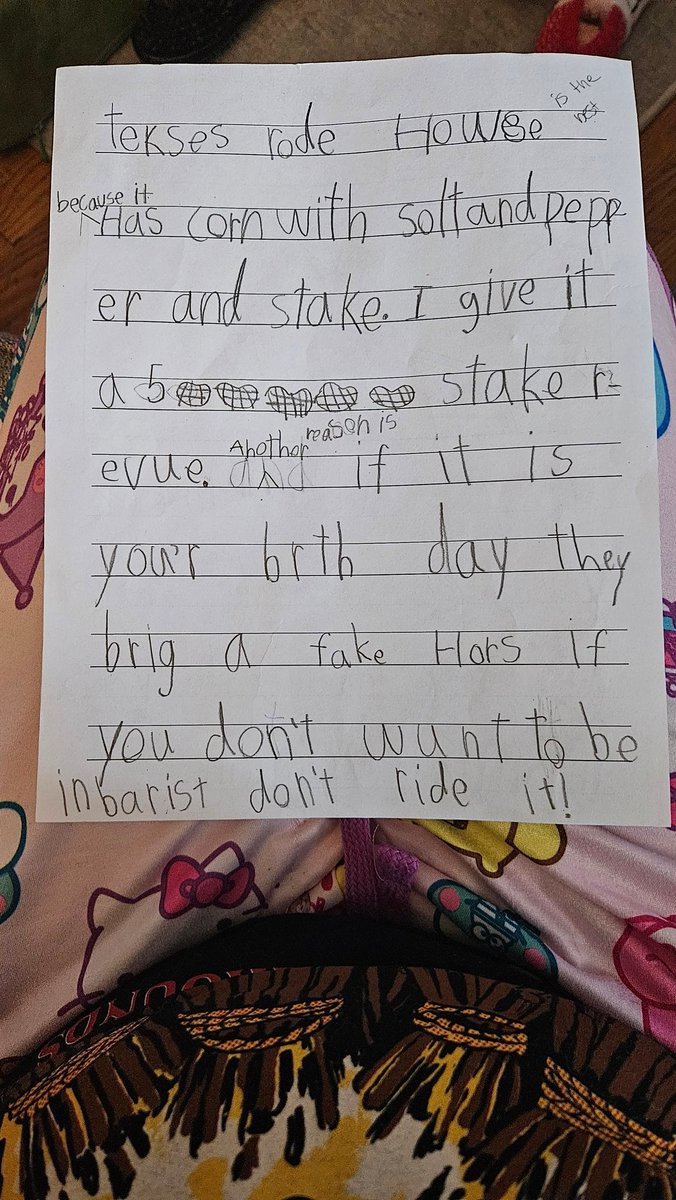 tekses rode Howse is the best
because it
Has corn with solt and pepp
er and stake. I give it
a 5 stake r
evue. Another reason is if it is
your brth day they
brig a fake Hors if
you don't wunt to be
inbarist don't ride it!
ROUNDS